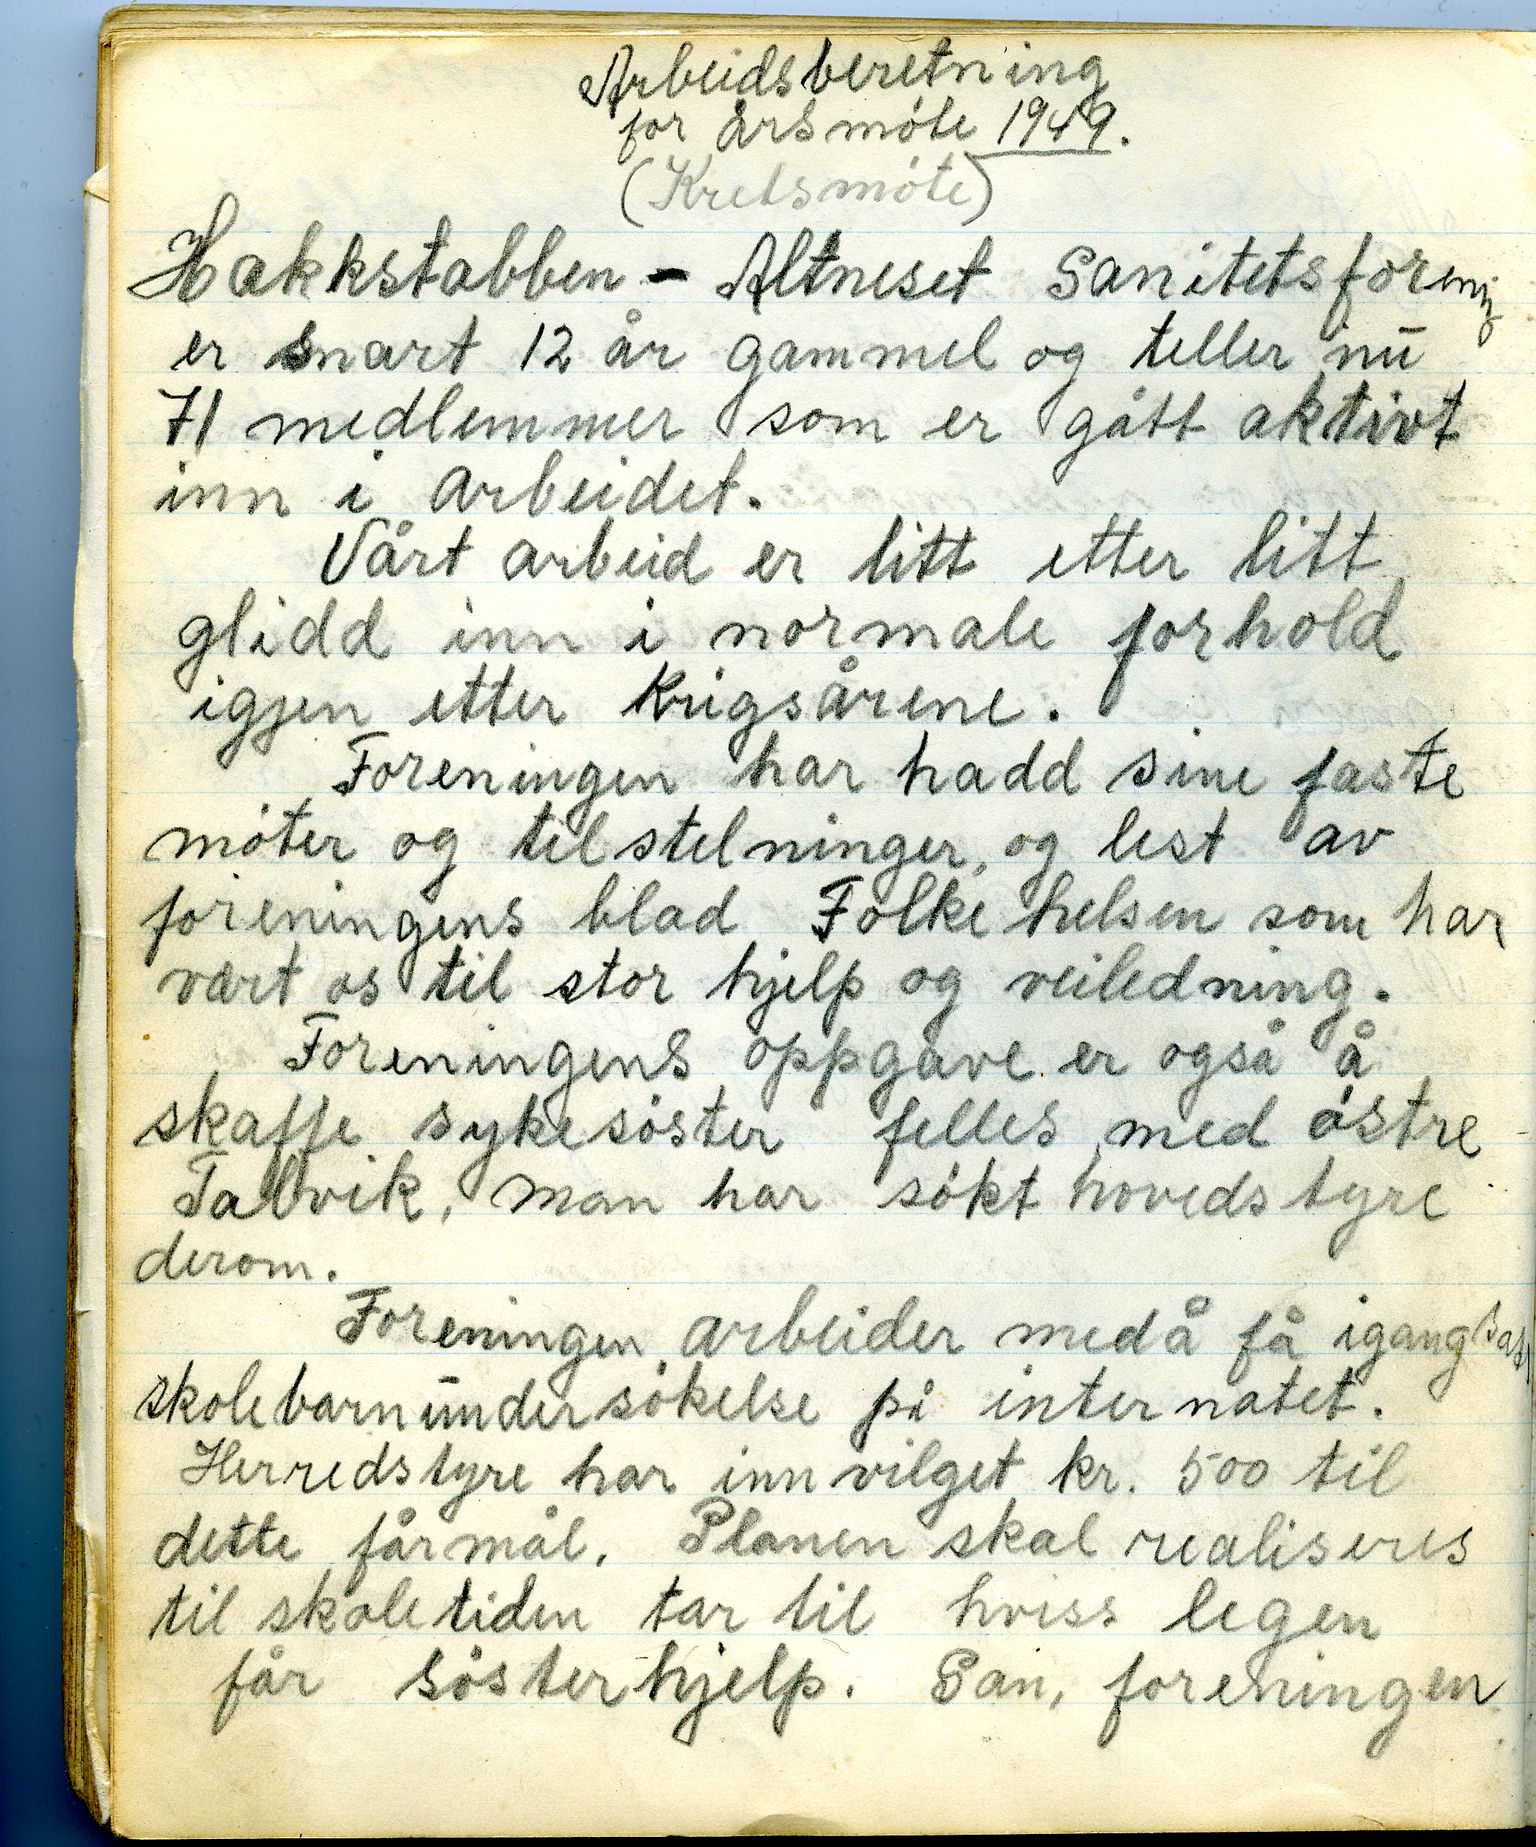 Arbeidsberetning
for årsmóte 1949.
(Kretsmóte)
Hakkstabben - Altneset Sanitetsforening
er snart 12 år gammel og teller nu
71 medlemmer som er gått aktivt
inn i arbeidet.
Vårt arbeid er litt etter litt
glidd inn i normale forhold
igjen etter krigsårene.
Foreningen har hadd sine faste
móter og tilstelninger, og lest av
foreningens blad Folkehelsen som har
vært os til stor hjelp og veiledning.
Foreningens oppgave er også å
skaffe sykesóster felles med óstre
Talvik, man har sókt hovedstyre
derom.
Foreningen arbeider med å få igang
skolebarnundersókelse på internatet.
Herredstyre har innvilget kr. 500 til
dette fårmål. Planen skal realiseres
til skoletiden tar til hviss legen
får sósterhjelp. San, foreningen